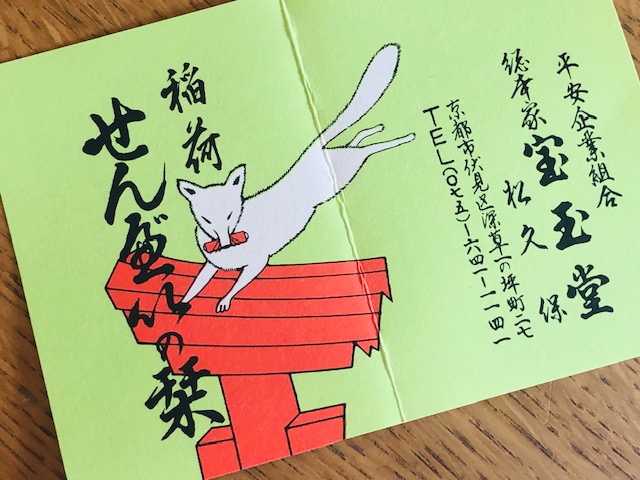 平安企業組合
総本家 宝玉堂
松久 保
京都市伏見区深草一の坪町二七
TEL(〇七五)-六四一-一一四一
稲荷
せんべいの栞